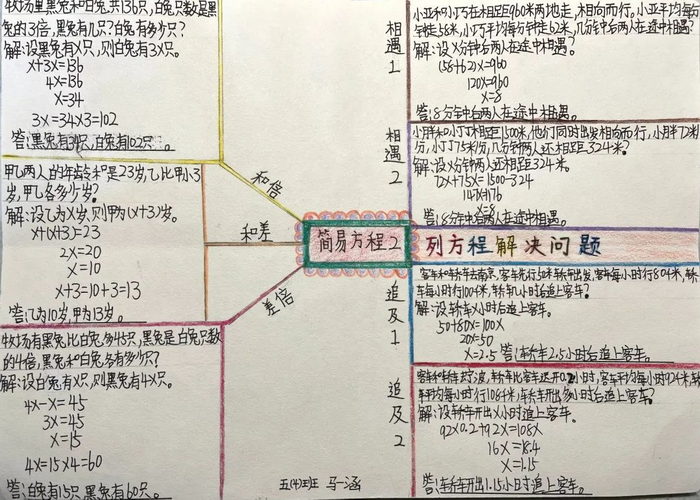 牧场里黑兔和白兔共136只,白兔只数是黑
兔的3倍,黑兔有几只?白兔有多少只?
解:设黑兔有X只,则白兔有3X只。
x+3x=136
4x=136
x=34
3x=34×3=102
答:黑兔有34只,白兔有102只。
甲乙两人的年龄和是23岁,乙比甲小3
岁,甲乙各多少岁?
解:设乙为X岁,则甲为(x+3)岁。
x+(x+3)=23
2x=20
x=10
x+3=10+3=13
答:乙为10岁,甲为13岁。
牧场有黑兔比白兔多45只,黑兔是白兔只数
的4倍,黑兔和白兔各有多少只?
解:设白兔有X只,则黑兔有4X只。
4x-x=45
3x=45
x=15
4x=15×4=60
答:白兔有15只,黑兔有60只。
和倍
和差
差倍
简易方程2
列方程解决问题
相遇1
相遇2
追及1
追及2
小亚和小巧在相距960米两地走,相向而行,小亚平均每分
钟走58米,小巧平均每分钟走62米,几分钟后两人在途中相遇?
解:设X分钟后两人在途中相遇。
(58+62)x=960
120x=960
x=8
答:8分钟后两人在途中相遇。
小胖和小丁丁相距1500米,他们同时出发相向而行,小胖72米/
分,小丁丁75米/分,几分钟两人还相距324米?
解:设X分钟两人还相距324米。
72x+75x=1500-324
147x=1176
x=8
答:8分钟后两人在途中相遇。
客车和轿车去南京,客车先行50米轿车出发,客车每小时行80千米,轿
车每小时行100千米,轿车几小时后追上客车。
解:设轿车X小时后追上客车。
50+80x=100x
20x=50
x=2.5
答:轿车2.5小时后追上客车。
客车和轿车去宁波,轿车比客车迟开0.2小时,客车平均每小时行92千米,轿
车平均每小时行108千米,轿车开出多少小时后追上客车?
解:设轿车开出X小时追上客车。
92×0.2+92x=108x
16x=18.4
x=1.15
答:轿车开出1.15小时追上客车。
五(4)班 马一涵